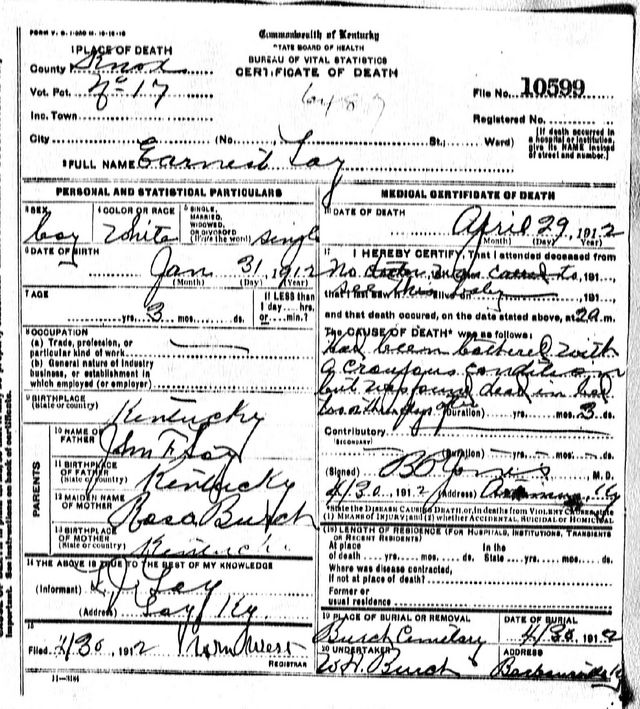 Commonwealth of Kentucky
STATE BOARD OF HEALTH
BUREAU OF VITAL STATISTICS
CERTIFICATE OF DEATH
1 PLACE OF DEATH
County Knox
Vot. Pct. No 17
Inc. Town
City (No. St.; Ward)
File No. 10599
Registered No.
[If death occurred in a hospital or institution, give its NAME instead of street and number.]
2 FULL NAME Earnest Lay
PERSONAL AND STATISTICAL PARTICULARS
3 SEX boy
4 COLOR OR RACE White
5 SINGLE, MARRIED, WIDOWED, OR DIVORCED (Write the word) single
6 DATE OF BIRTH
Jan 31, 1912
(Month) (Day) (Year)
7 AGE
yrs. 3 mos. ds.
If LESS than 1 day ... hrs. or ... min.?
8 OCCUPATION
(a) Trade, profession, or particular kind of work
(b) General nature of industry business, or establishment in which employed (or employer)
9 BIRTHPLACE
(State or country) Kentucky
PARENTS
10 NAME OF FATHER John F. Lay
11 BIRTHPLACE OF FATHER (State or country) Kentucky
12 MAIDEN NAME OF MOTHER Rosa Burch
13 BIRTHPLACE OF MOTHER (State or country)
14 THE ABOVE IS TRUE TO THE BEST OF MY KNOWLEDGE
(Informant) Lay
(Address) Lay Ky.
15
Filed 4/30, 1912 Wm West
REGISTRAR
11-3184
MEDICAL CERTIFICATE OF DEATH
16 DATE OF DEATH
April 29, 1912
(Month) (Day) (Year)
17 I HEREBY CERTIFY, That I attended deceased from
No doctor was called to, 191
see this baby, 191
and that death occured, on the date stated above, at 2 a m.
The CAUSE OF DEATH* was as follows:
Had been bothered with
a croupous condition
but was found dead in bed
(Duration) yrs. mos. 3 ds.
Contributory
(SECONDARY)
(Duration) yrs. mos. ds.
(Signed) B Jones, M.D.
4/30 1912 (Address) Ky
*State the DISEASE CAUSING DEATH, or, in deaths from VIOLENT CAUSES, state (1) MEANS OF INJURY; and (2) whether ACCIDENTAL, SUICIDAL or HOMICIDAL
(18) LENGTH OF RESIDENCE (FOR HOSPITALS, INSTITUTIONS, TRANSIENTS OR RECENT RESIDENTS)
At place of death yrs. mos. ds. In the State yrs. mos. ds.
Where was disease contracted, If not at place of death?
Former or usual residence
19 PLACE OF BURIAL OR REMOVAL
Burch Cemetary
DATE OF BURIAL
4/30 1912
20 UNDERTAKER
W.H. Burch
ADDRESS